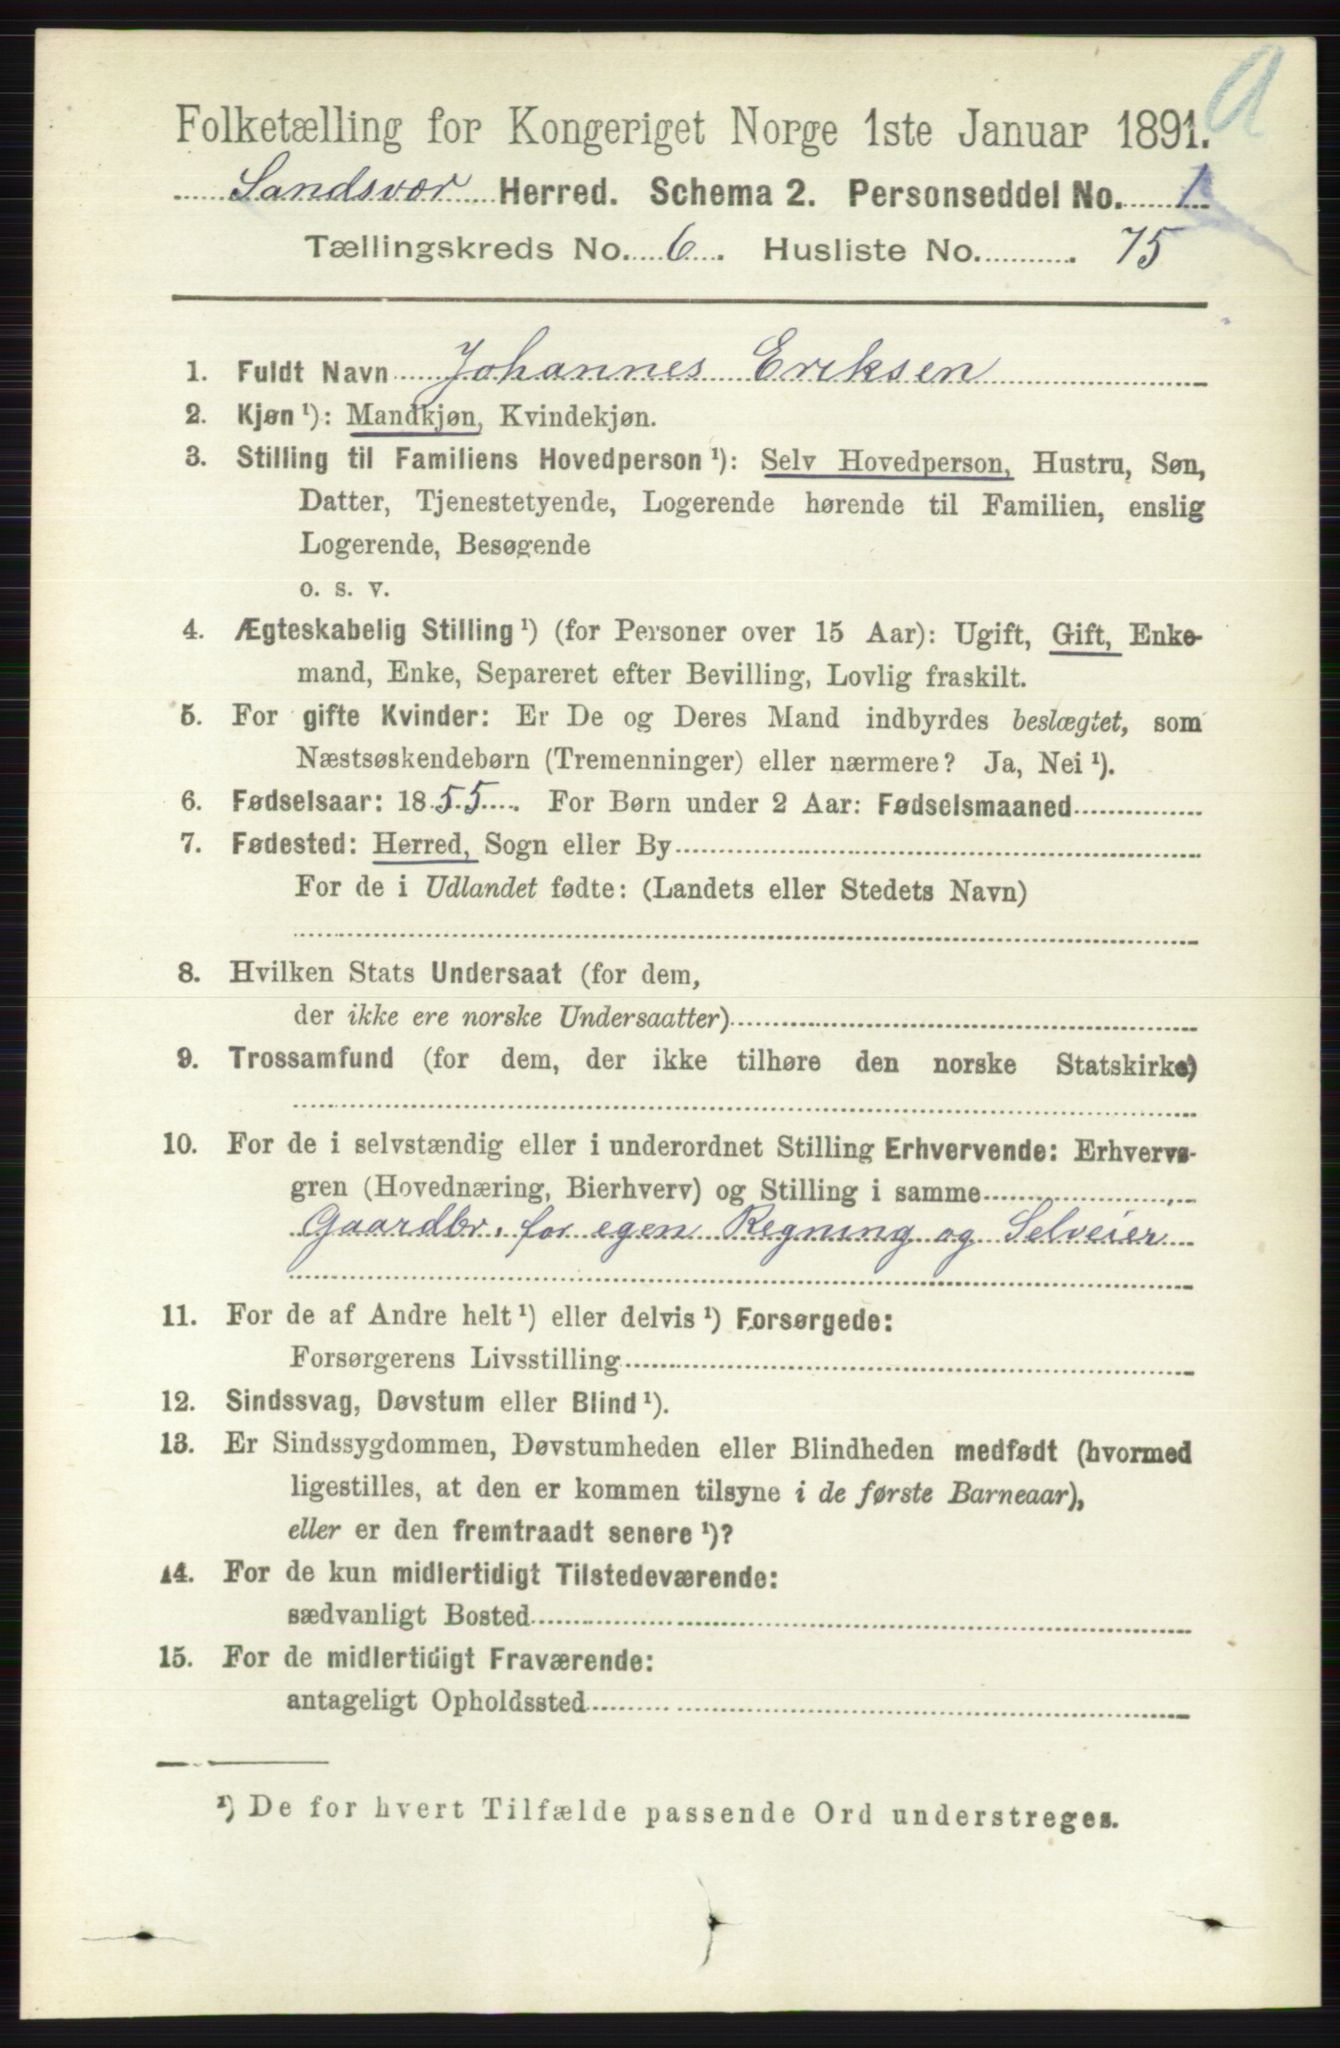 a
Folketælling for Kongeriget Norge 1ste Januar 1891.
Sandsvær Herred. Schema 2. Personseddel No. 1
Tællingskreds No. 6. Husliste No. 75
1. Fuldt Navn Johannes Eriksen
2. Kjøn ¹): Mandkjøn, Kvindekjøn.
3. Stilling til Familiens Hovedperson ¹): Selv Hovedperson, Hustru, Søn,
Datter, Tjenestetyende, Logerende hørende til Familien, enslig
Logerende, Besøgende
o. s. v.
4. Ægteskabelig Stilling ¹) (for Personer over 15 Aar): Ugift, Gift, Enke-
mand, Enke, Separeret efter Bevilling, Lovlig fraskilt.
5. For gifte Kvinder: Er De og Deres Mand indbyrdes beslægtet, som
Næstsøskendebørn (Tremenninger) eller nærmere? Ja, Nei ¹).
6. Fødselsaar: 1855. For Børn under 2 Aar: Fødselsmaaned
7. Fødested: Herred, Sogn eller By
For de i Udlandet fødte: (Landets eller Stedets Navn)
8. Hvilken Stats Undersaat (for dem,
der ikke ere norske Undersaatter)
9. Trossamfund (for dem, der ikke tilhøre den norske Statskirke)
10. For de i selvstændig eller i underordnet Stilling Erhvervende: Erhvervs-
gren (Hovednæring, Bierhverv) og Stilling i samme
Gaardbr. for egen Regning og Selveier
11. For de af Andre helt ¹) eller delvis ¹) Forsørgede:
Forsørgerens Livsstilling
12. Sindssvag, Døvstum eller Blind ¹).
13. Er Sindssygdommen, Døvstumheden eller Blindheden medfødt (hvormed
ligestilles, at den er kommen tilsyne i de første Barneaar),
eller er den fremtraadt senere ¹)?
14. For de kun midlertidigt Tilstedeværende:
sædvanligt Bosted
15. For de midlertidigt Fraværende:
antageligt Opholdssted
¹) De for hvert Tilfælde passende Ord understreges.